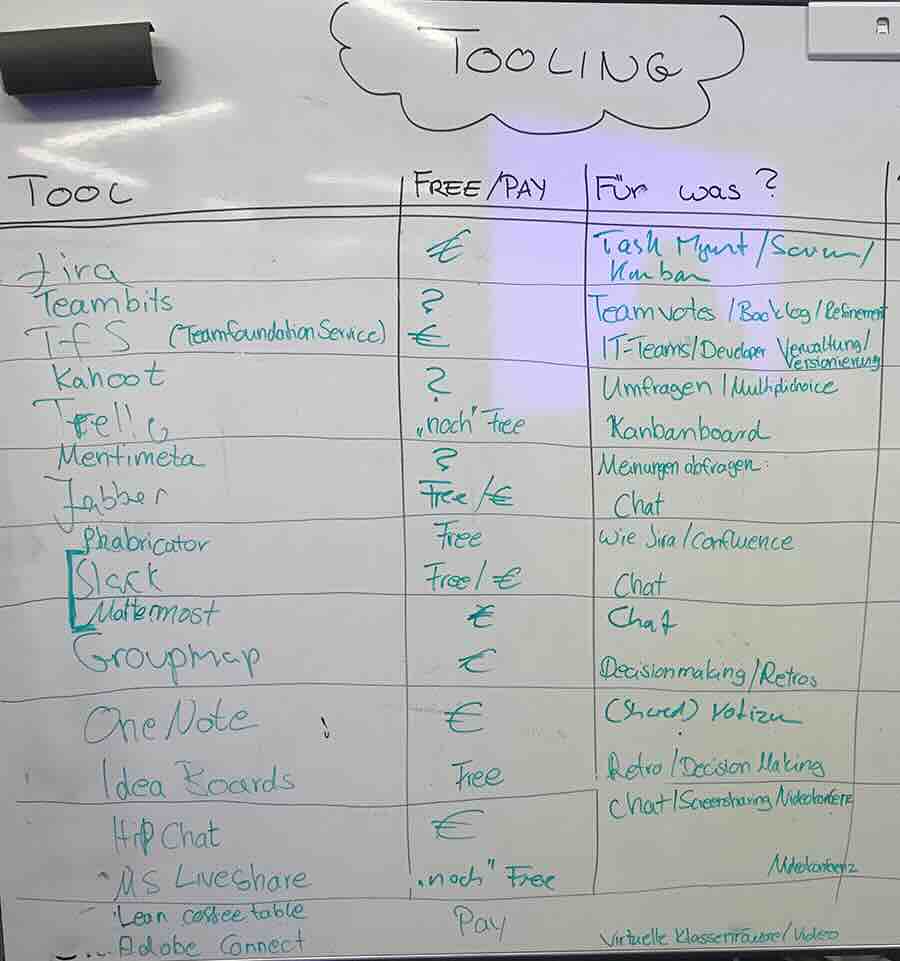 TOOLING
TOOL FREE/PAY Für was?
Jira € Task Mgmt/Scrum/
Kanban
Teambits ? Teamvotes/Backlog/Refinement
TfS (TeamfoundationService) € IT-Teams/Developer Verwaltung/
Versionierung
Kahoot ? Umfragen/Multiplichoice
Trello „noch" Free Kanbanboard
Mentimeta ? Meinungen abfragen:
Jabber Free/€ Chat
Phabricator Free wie Jira/Confluence
Slack Free/€ Chat
Mattermost € Chat
Groupmap € Decisionmaking/Retros
OneNote € (Shared) Notizen
Idea Boards Free Retro/Decision Making
HipChat € Chat/Screensharing/Videokonferenz
MS Liveshare „noch" Free Videokonferenz
Lean coffee table
Adobe Connect Pay Virtuelle Klassenräume/Video